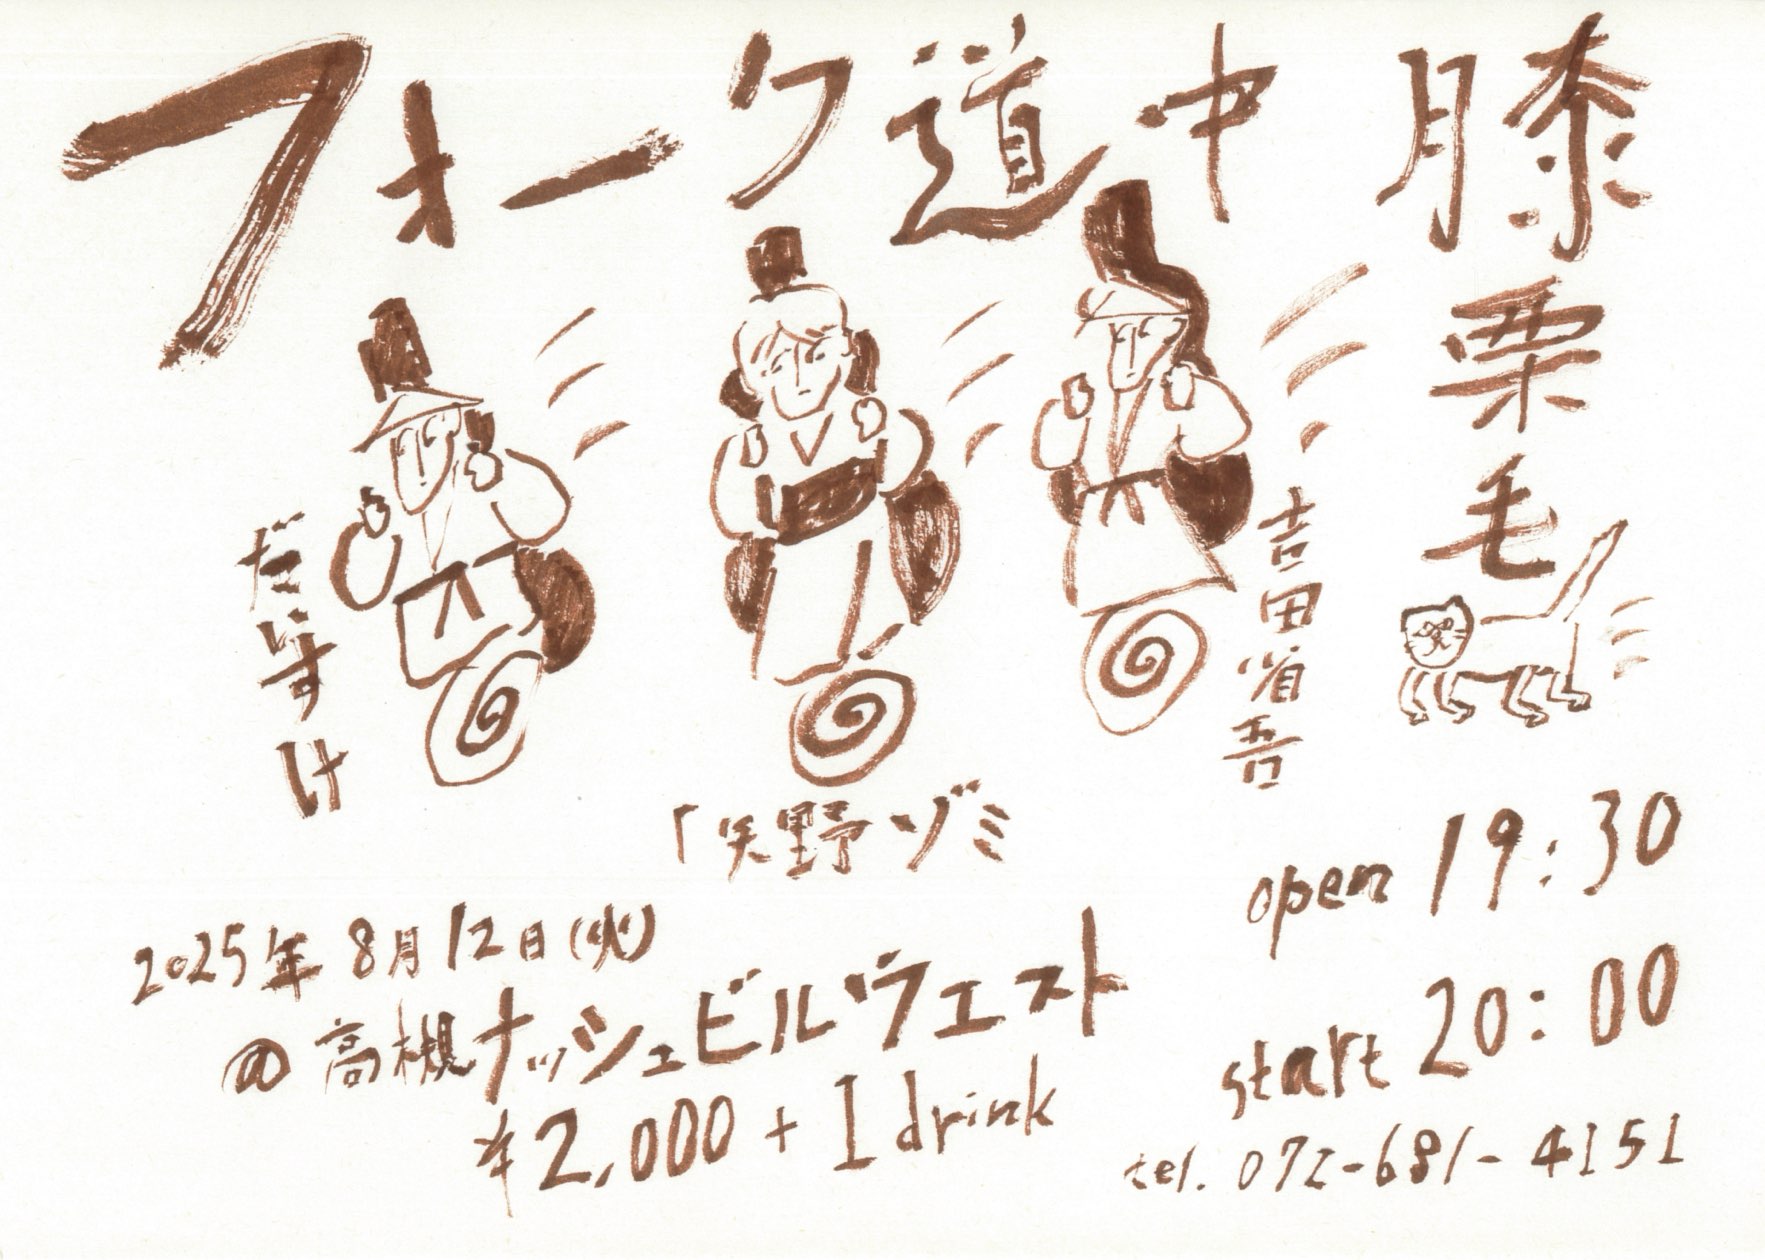 フォーク道中膝栗毛
だいすけ
「矢野ゾミ
吉田省吾
2025年8月12日(火)
@高槻ナッシュビルウエスト
¥2,000+1drink
open 19:30
start 20:00
tel. 072-681-4151